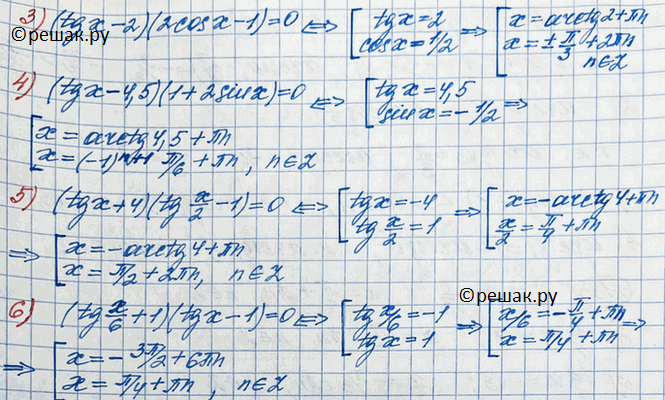 3) (tgx-2)(2cosx-1)=0 <=> [ tgx=2 cosx=1/2 => [ x=arctg2+πn x=±π/3+2πn n∈Z
©решак.ру
4) (tgx-4,5)(1+2sinx)=0 <=> [ tgx=4,5 sinx=-1/2 =>
[ x=arctg4,5+πn
x=(-1)^(n+1) π/6+πn, n∈Z
5) (tgx+4)(tg x/2 -1)=0 <=> [ tgx=-4 tg x/2 =1 => [ x=-arctg4+πn x/2=π/4+πn
=> [ x=-arctg4+πn
x=π/2+2πn, n∈Z
©решак.ру
6) (tg x/6 +1)(tgx-1)=0 <=> [ tg x/6=-1 tgx=1 => [ x/6=-π/4+πn x=π/4+πn =>
=> [ x=-3π/2+6πn
x=π/4+πn, n∈Z